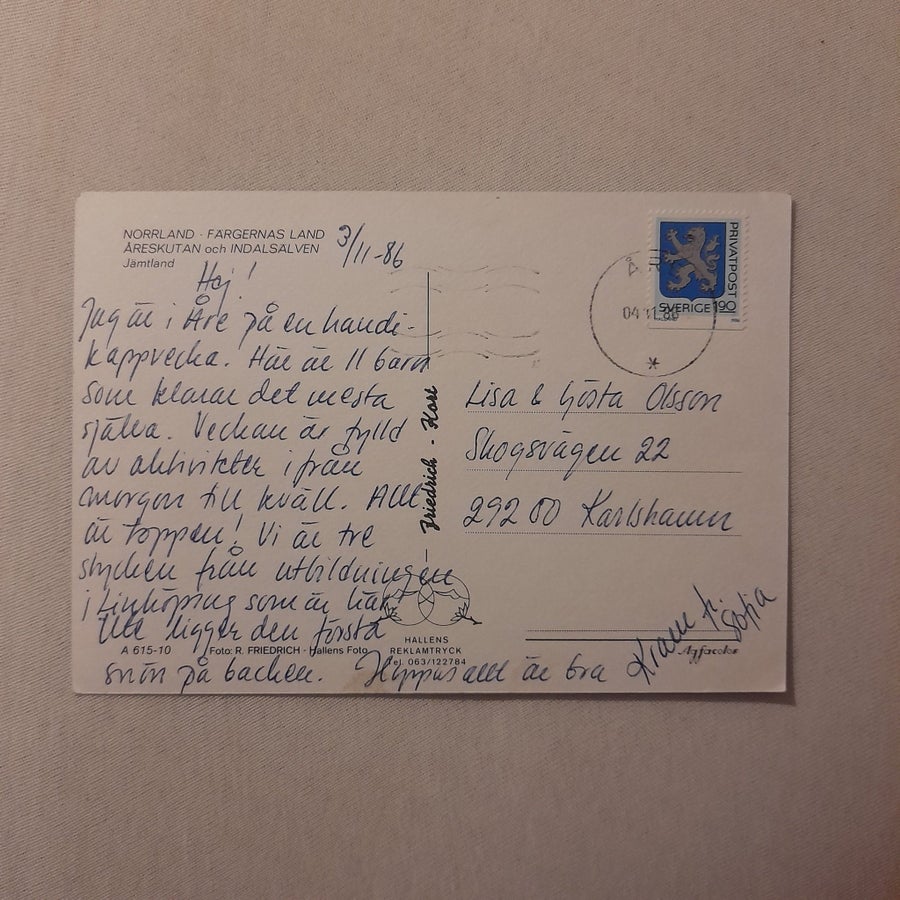 NORRLAND · FÄRGERNAS LAND
ÅRESKUTAN och INDALSÄLVEN
Jämtland
3/11-86
Hej!
Jag är i Åre på en handi-
kappvecka. Här är 11 barn
som klarar det mesta
själva. Veckan är fylld
av aktiviteter ifrån
morgon till kväll. Allt
är toppen! Vi är tre
stycken från utbildningen
i Linköping som är här.
Ute ligger den första
snön på backen. Hoppas allt är bra
Kram fr.
Sofia
A 615-10 Foto: R. FRIEDRICH - Hallens Foto
Friedrich - Kort
HALLENS
REKLAMTRYCK
Tel. 063/122784
Agfacolor
PRIVATPOST
SVERIGE 190
ÅRE
04.11.86
Lisa & Gösta Olsson
Skogsvägen 22
292 00 Karlshamn